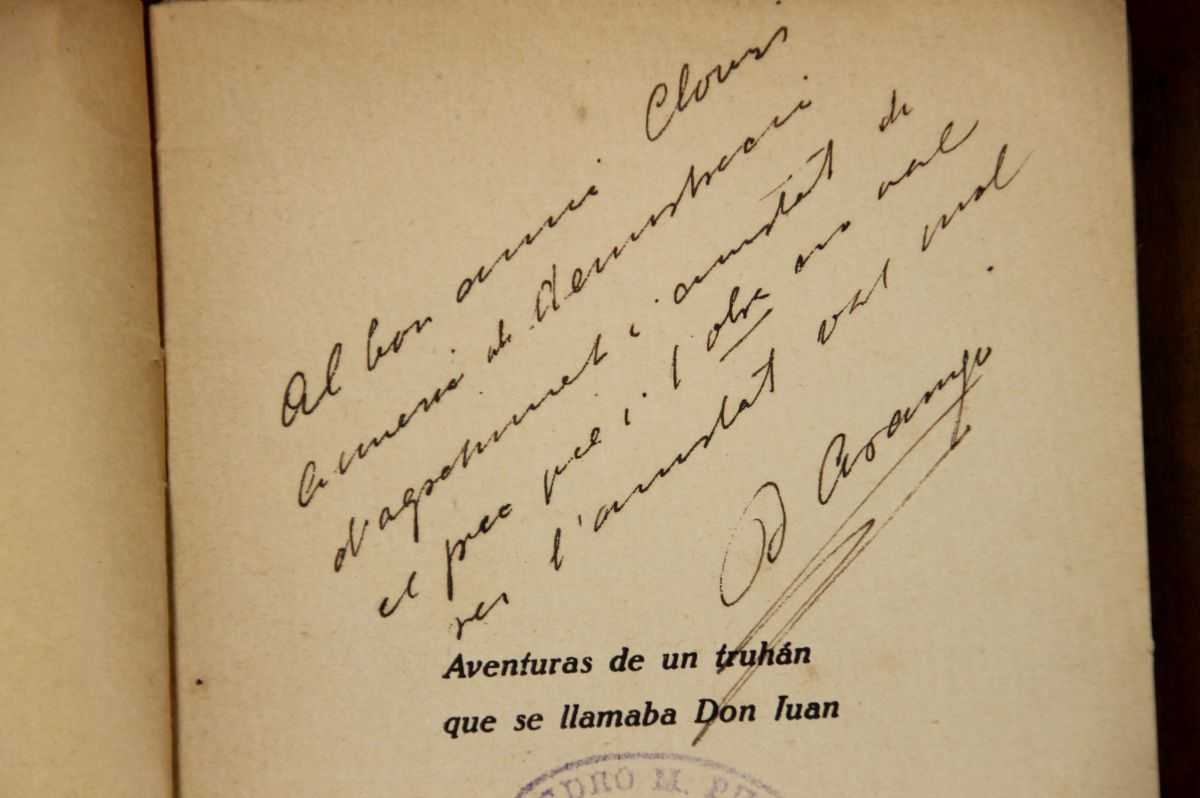 Al bon amic Clovis
Americ de demostracio
d'agraiment i amistat de
el poc que i l'obra no val
res l'amistat val mol
D Arango
Aventuras de un truhán
que se llamaba Don Juan
PEDRO M.